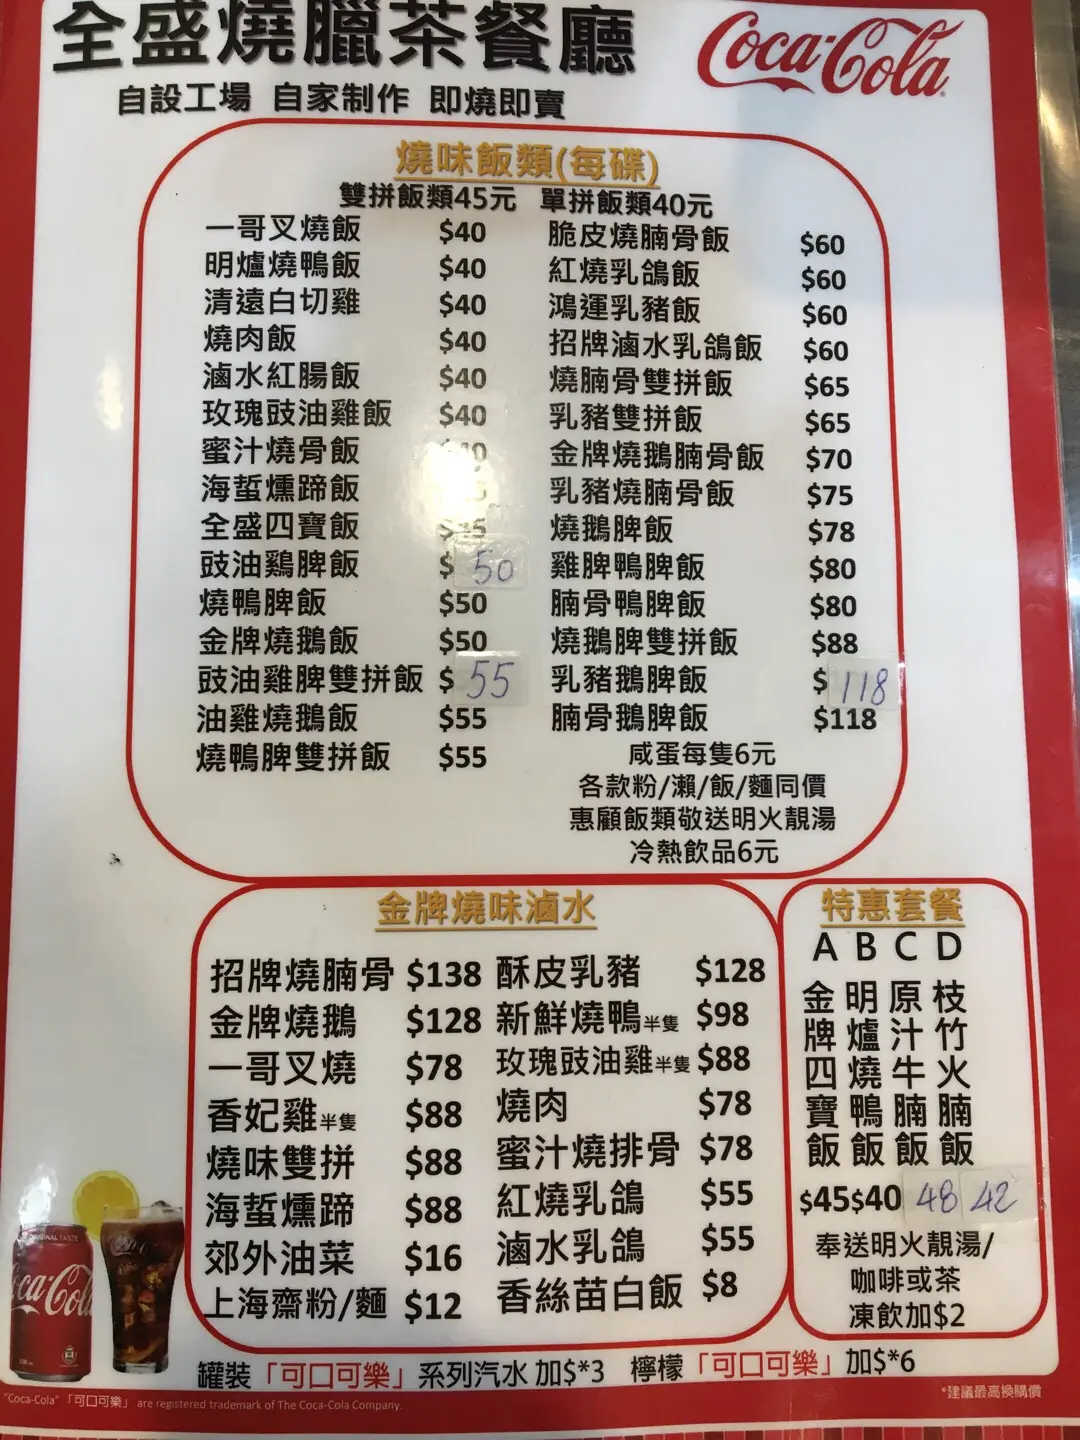 全盛燒臘茶餐廳
Coca-Cola
自設工場 自家制作 即燒即賣
燒味飯類(每碟)
雙拼飯類45元 單拼飯類40元
一哥叉燒飯 $40
明爐燒鴨飯 $40
清遠白切雞 $40
燒肉飯 $40
滷水紅腸飯 $40
玫瑰豉油雞飯 $40
蜜汁燒骨飯
海蜇燻蹄飯
全盛四寶飯
豉油鷄脾飯 $50
燒鴨脾飯 $50
金牌燒鵝飯 $50
豉油雞脾雙拼飯 $55
油雞燒鵝飯 $55
燒鴨脾雙拼飯 $55
脆皮燒腩骨飯 $60
紅燒乳鴿飯 $60
鴻運乳豬飯 $60
招牌滷水乳鴿飯 $60
燒腩骨雙拼飯 $65
乳豬雙拼飯 $65
金牌燒鵝腩骨飯 $70
乳豬燒腩骨飯 $75
燒鵝脾飯 $78
雞脾鴨脾飯 $80
腩骨鴨脾飯 $80
燒鵝脾雙拼飯 $88
乳豬鵝脾飯 $118
腩骨鵝脾飯 $118
咸蛋每隻6元
各款粉/瀨/飯/麵同價
惠顧飯類敬送明火靚湯
冷熱飲品6元
金牌燒味滷水
招牌燒腩骨 $138
金牌燒鵝 $128
一哥叉燒 $78
香妃雞半隻 $88
燒味雙拼 $88
海蜇燻蹄 $88
郊外油菜 $16
上海齋粉/麵 $12
酥皮乳豬 $128
新鮮燒鴨半隻 $98
玫瑰豉油雞半隻 $88
燒肉 $78
蜜汁燒排骨 $78
紅燒乳鴿 $55
滷水乳鴿 $55
香絲苗白飯 $8
特惠套餐
A 金牌四寶飯 $45
B 明爐燒鴨飯 $40
C 原汁牛腩飯 48
D 枝竹火腩飯 42
奉送明火靚湯/
咖啡或茶
凍飲加$2
罐裝「可口可樂」系列汽水 加$*3 檸檬「可口可樂」加$*6
"Coca-Cola" 「可口可樂」 are registered trademark of The Coca-Cola Company.
*建議最高換購價